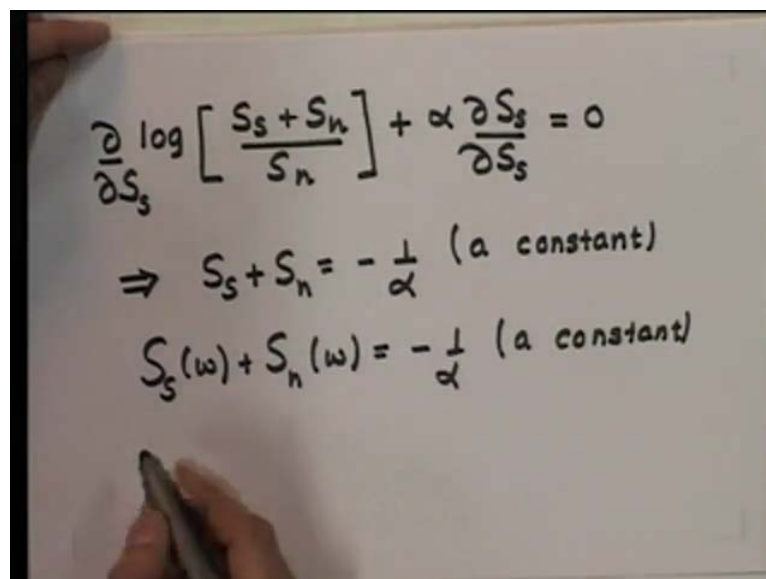 ∂/∂S_s log [ (S_s + S_n) / S_n ] + α ∂S_s/∂S_s = 0
⇒ S_s + S_n = - 1/α (a constant)
S_s(ω) + S_n(ω) = - 1/α (a constant)